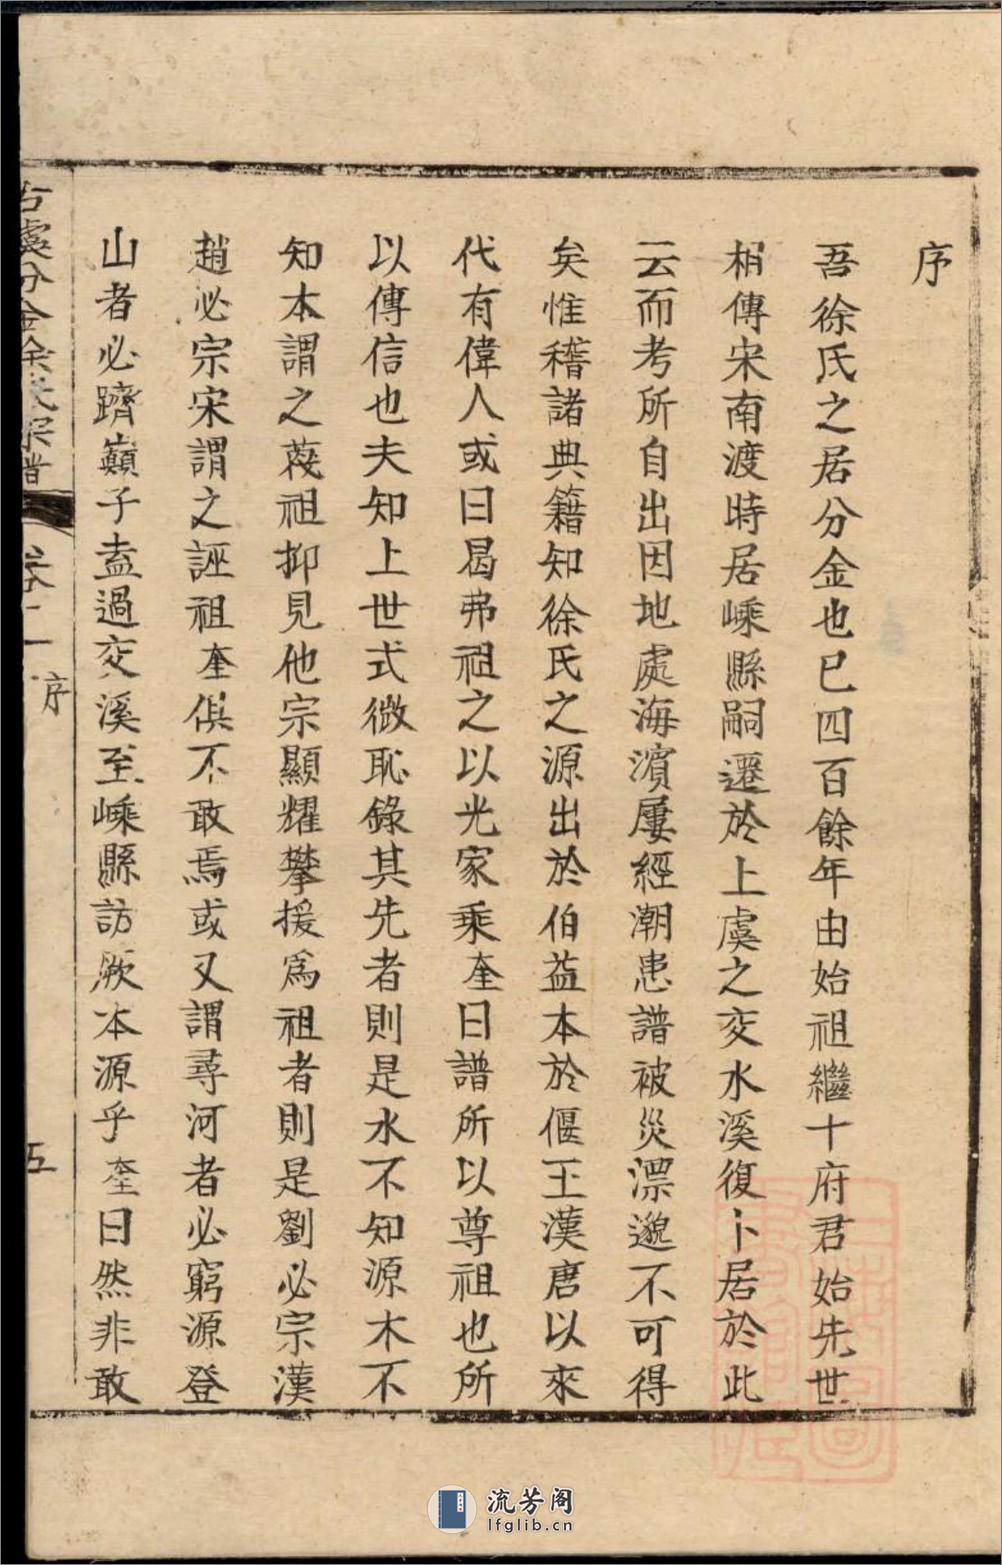 序
吾徐氏之居分金也已四百餘年由始祖繼十府君始先世
相傳宋南渡時居嵊縣嗣遷於上虞之交水溪復卜居於此
云而考所自出因地處海濱屢經潮患譜被災漂邈不可得
矣惟稽諸典籍知徐氏之源出於伯益本於偃王漢唐以來
代有偉人或曰曷弗祖之以光家乘奎曰譜所以尊祖也所
以傳信也夫知上世式微恥錄其先者則是水不知源木不
知本謂之蔑祖抑見他宗顯耀攀援爲祖者則是劉必宗漢
趙必宗宋謂之誣祖奎俱不敢焉或又謂尋河者必窮源登
山者必躋巔子盍過交溪至嵊縣訪厥本源乎奎曰然非敢
古虞分金徐氏宗譜 卷一 序 五
流芳阁
lfglib.cn